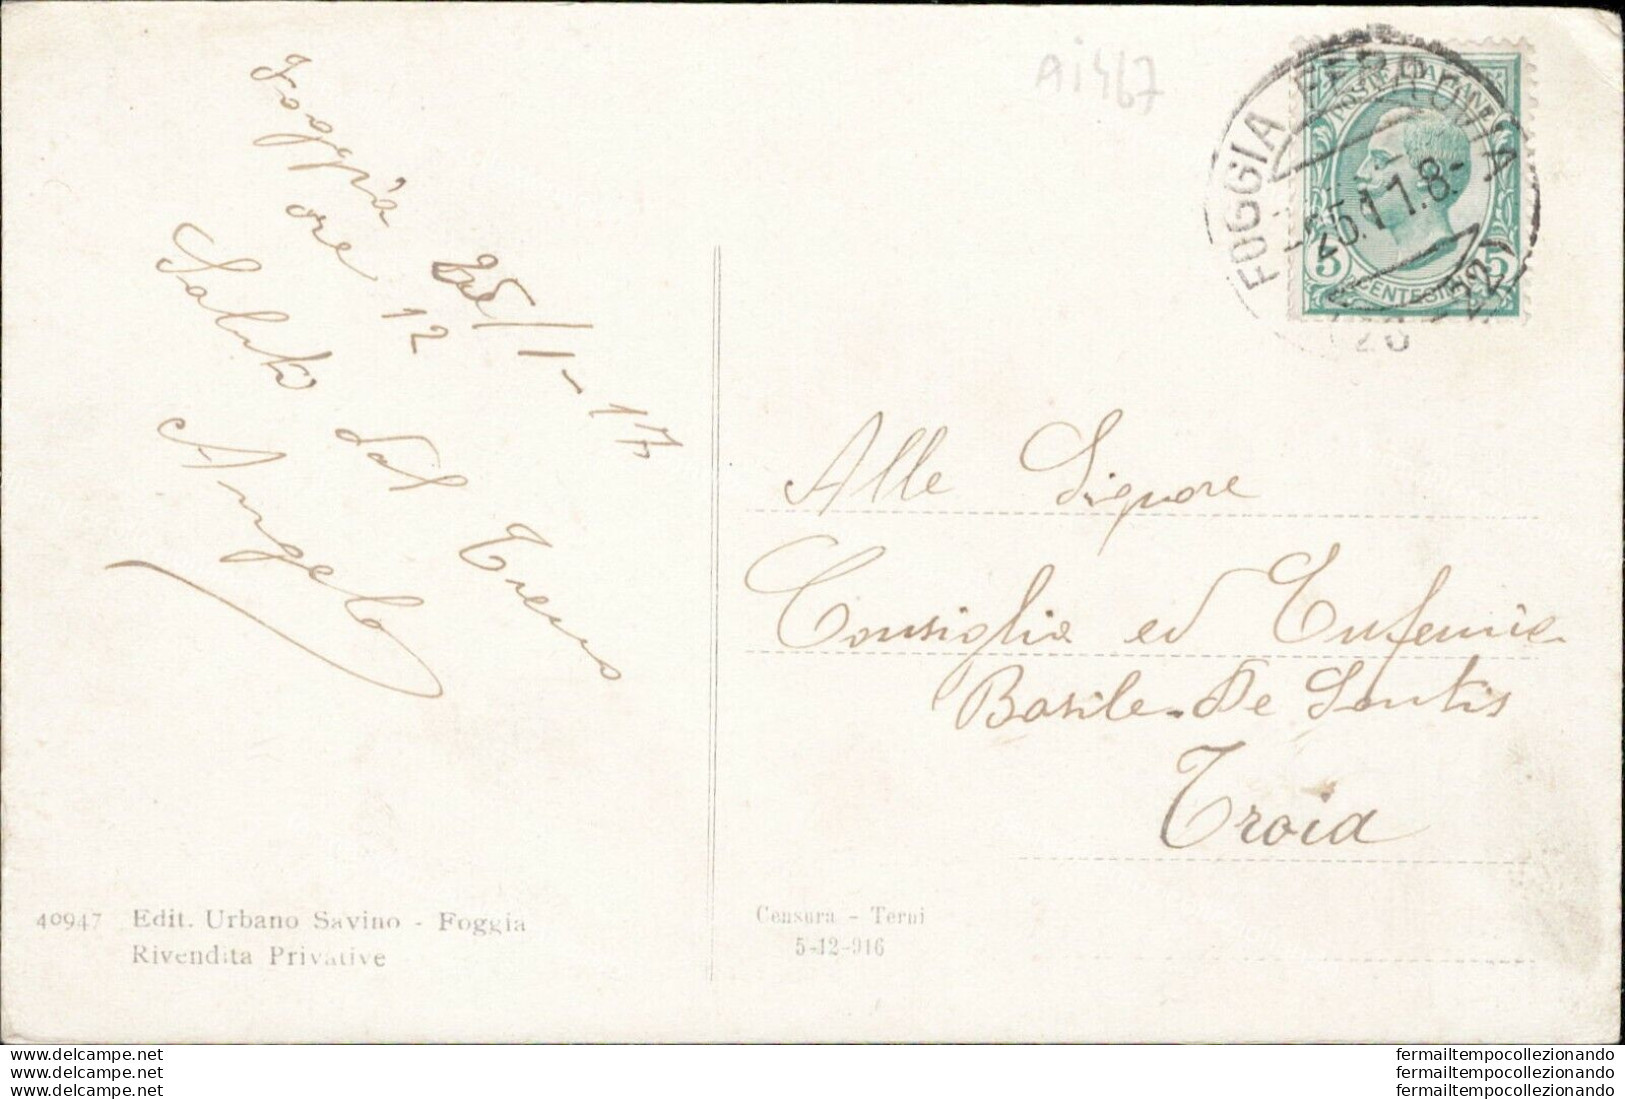 Ai467
Foggia 25/1-17
ore 12
Saluto dal Treno
Angelo
FOGGIA FERROVIA
25.1 1.8-
22
POSTE ITALIANE
5 CENTESIMI 5
Alle Signore
Consiglia ed Eufemia
Basile-De Santis
Troia
40947 Edit. Urbano Savino - Foggia
Rivendita Privative
Censura - Terni
5-12-916
www.delcampe.net
www.delcampe.net
www.delcampe.net
fermailtempocollezionando
fermailtempocollezionando
fermailtempocollezionando